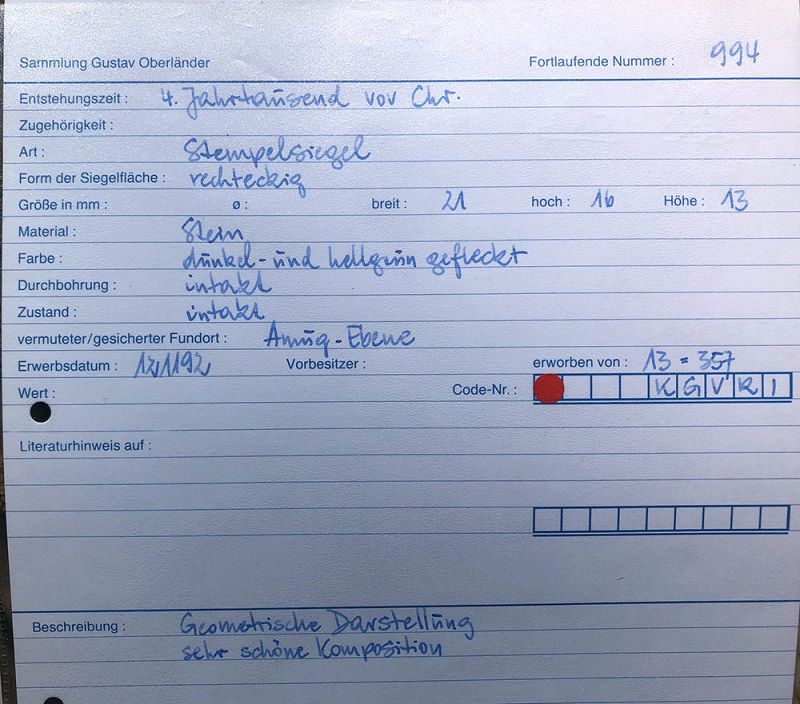 Sammlung Gustav Oberländer Fortlaufende Nummer : 994
Entstehungszeit : 4. Jahrtausend vor Chr.
Zugehörigkeit :
Art : Stempelsiegel
Form der Siegelfläche : rechteckig
Größe in mm : ø : breit : 21 hoch : 16 Höhe : 13
Material : Stein
Farbe : dunkel- und hellgrün gefleckt
Durchbohrung : intakt
Zustand : intakt
vermuteter/gesicherter Fundort : Amuq-Ebene
Erwerbsdatum : Vorbesitzer : erworben von : 13 = 357
Wert : Code-Nr. : K G V R I
Literaturhinweis auf :
Beschreibung : Geometrische Darstellung
sehr schöne Komposition